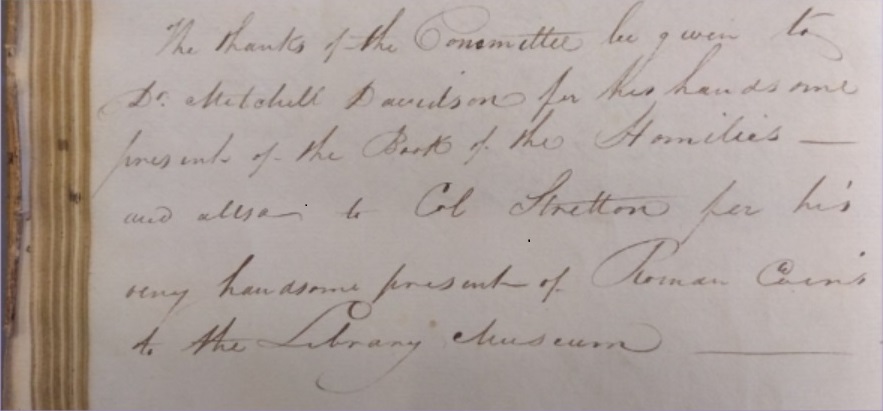 The thanks of the Committee be given to
Dr. Mitchell Davidson for his handsome
present of the Book of the Homilies —
and allso to Col Stretton for his
very handsome present of Roman Coins
to the Library Museum —